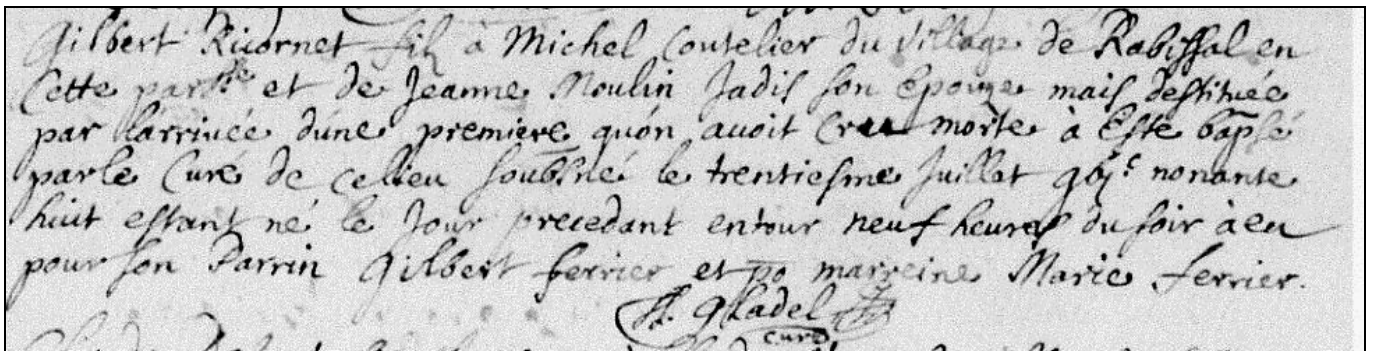 Gilbert Ricornet fil à Michel Coutelier du village de Rabissal en
Cette parsse et de Jeanne Moulin Jadis son Epouze mais destituée
par l'arrivée d'une premiere qu'on avoit Creu morte à Esté bapsé
par le Curé de ce lieu soubsné le trentiesme Juillet gbjc nonante
huit estant né le Jour precedant entour neuf heures du soir à eu
pour son Parrin Gilbert ferrier et po marreine Marie ferrier.
Gladel
curé